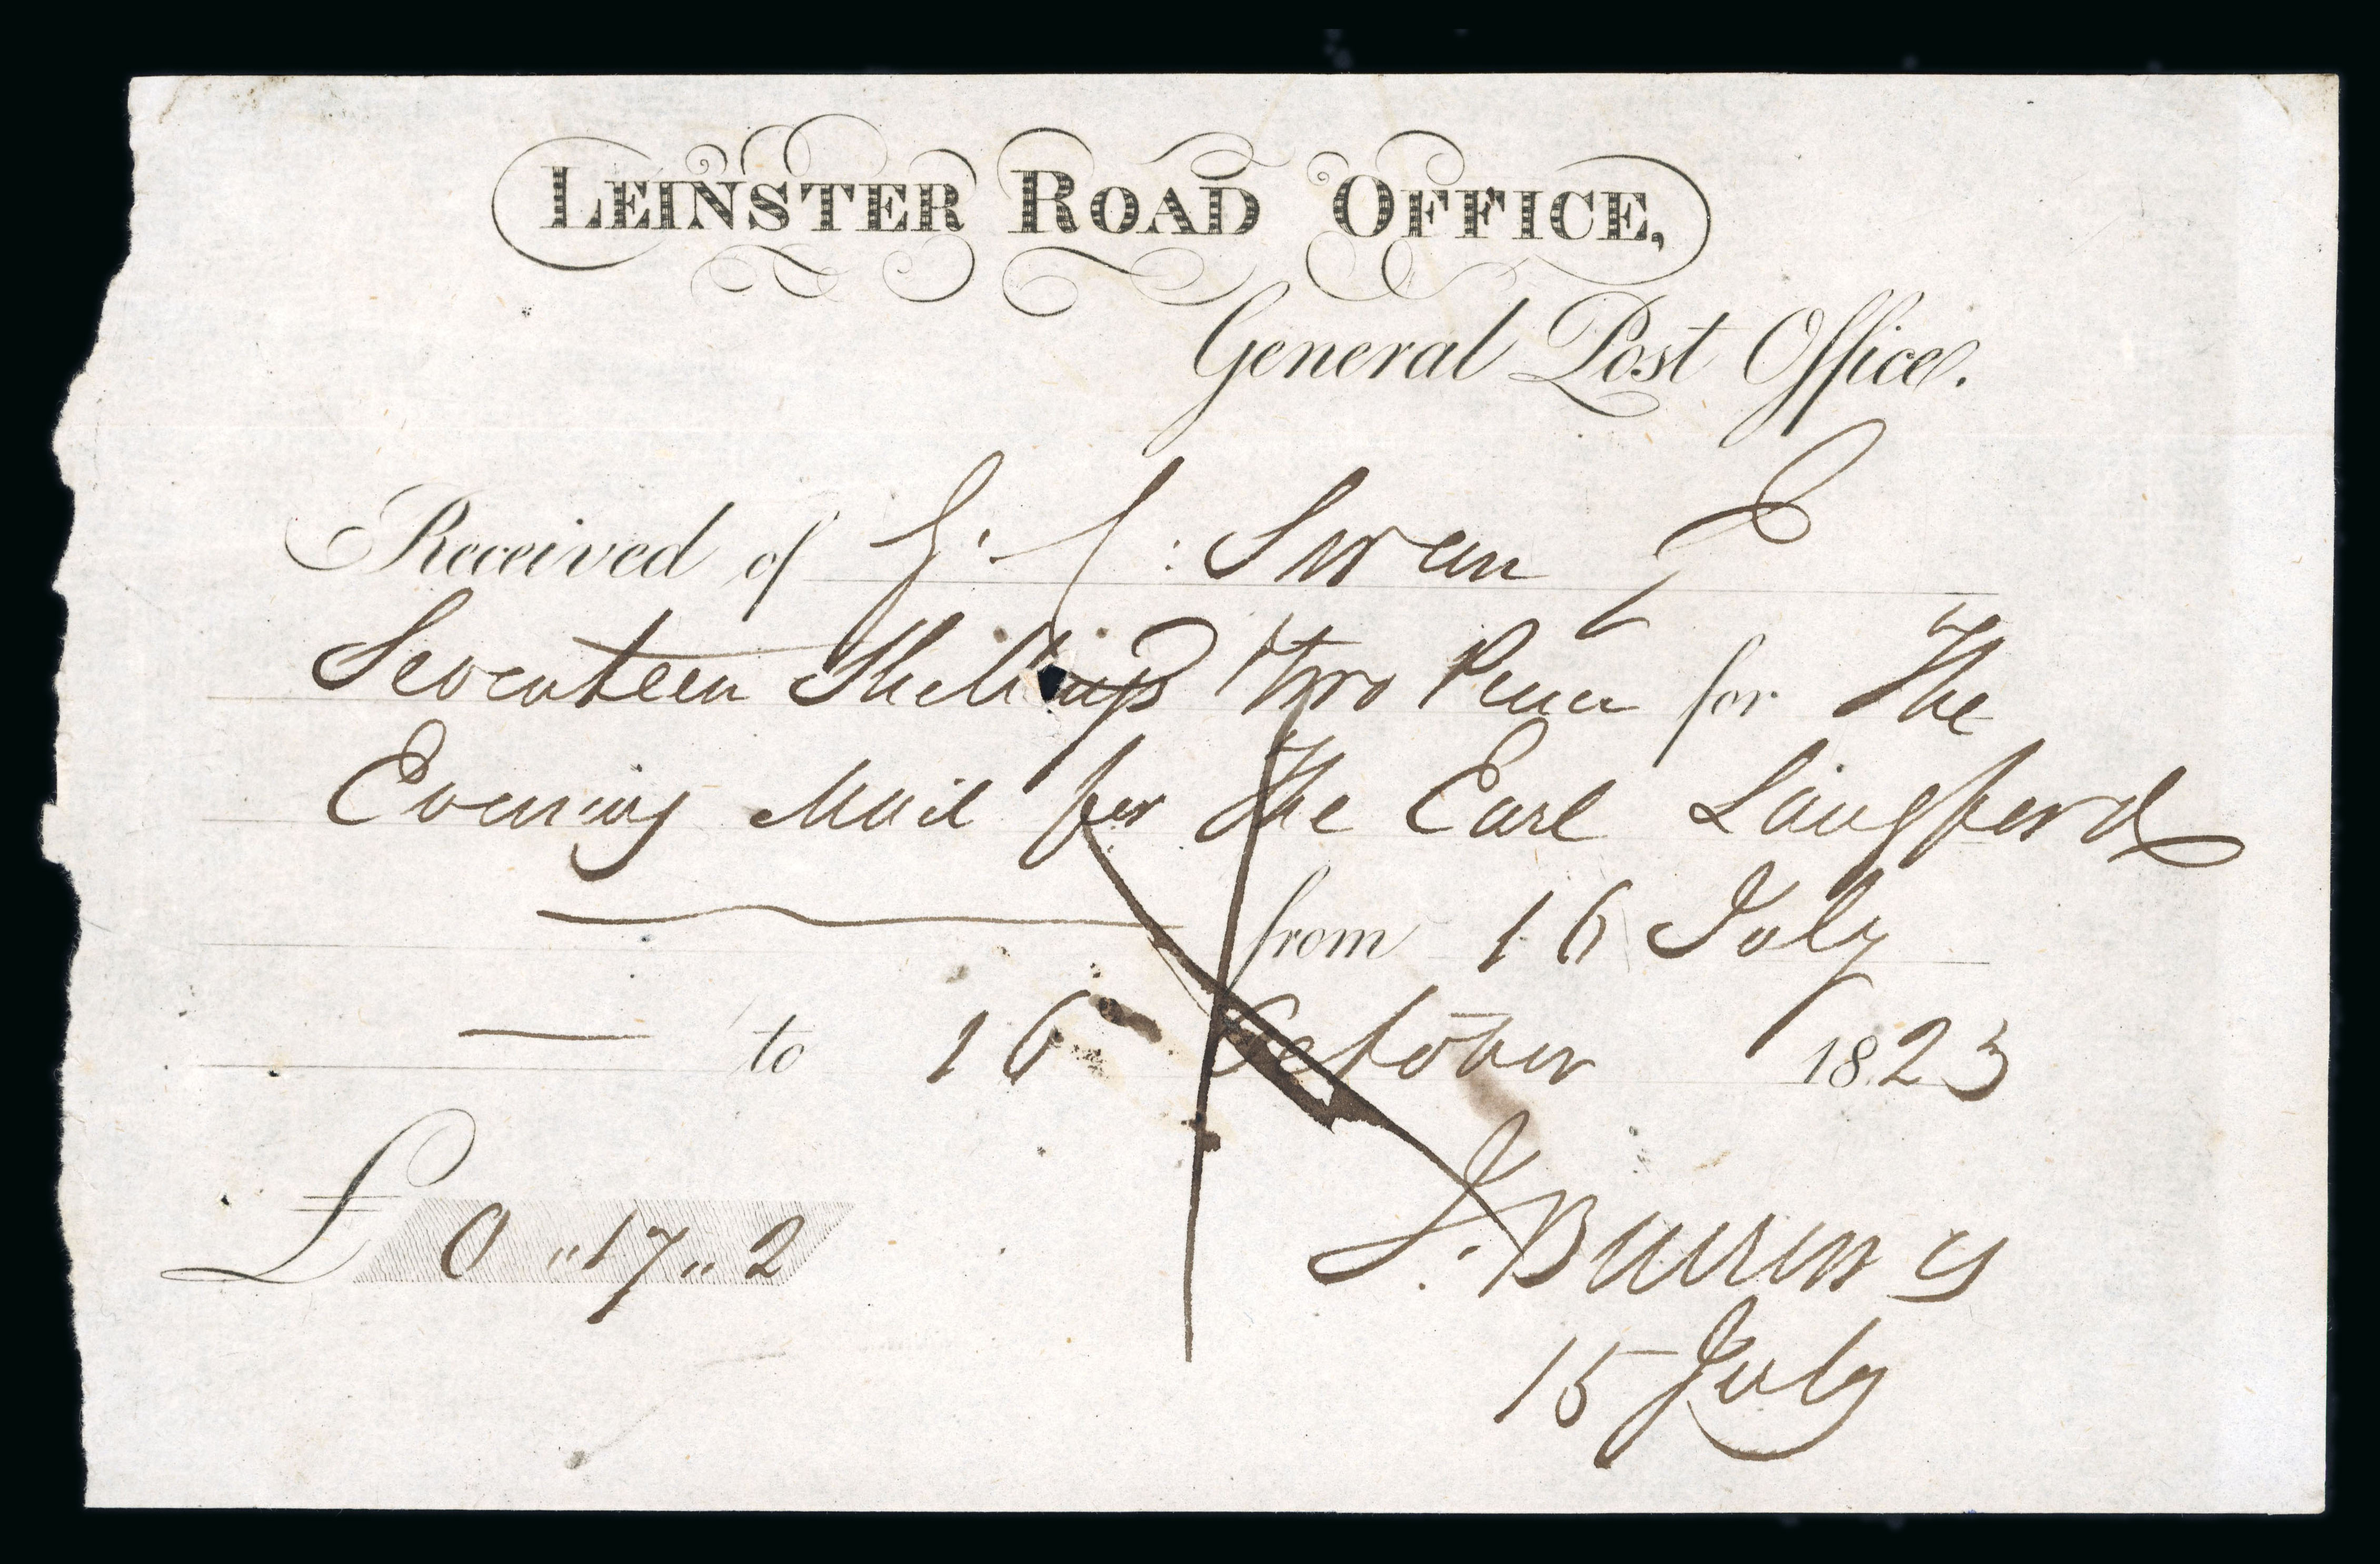 LEINSTER ROAD OFFICE,
General Post Office.
Received of G. L: Swan E
Seventeen Shillings Two Pence for The
Evening Mail for The Earl Langford
from 16 July
to 16 October 1823
£ 0 " 17 " 2
15 July